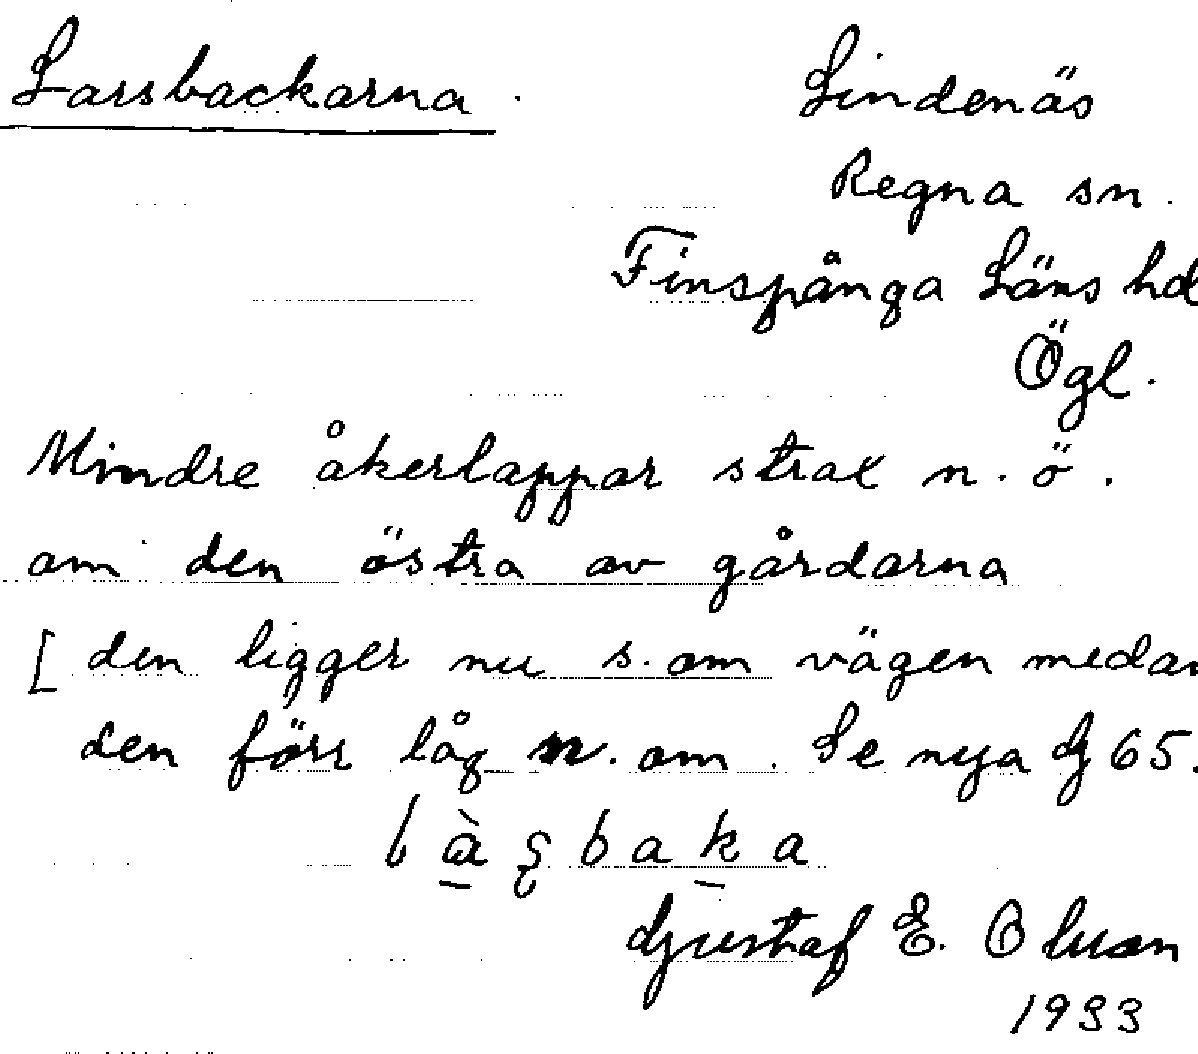 Larsbackarna.
Lindenäs
Regna sn.
Finspånga Läns hd
Ögl.
Mindre åkerlappar strax n.ö.
om den östra av gårdarna
[ den ligger nu s. om vägen medan
den förr låg n. om. Se nya G 65.
Gustaf E. Olsson
1933